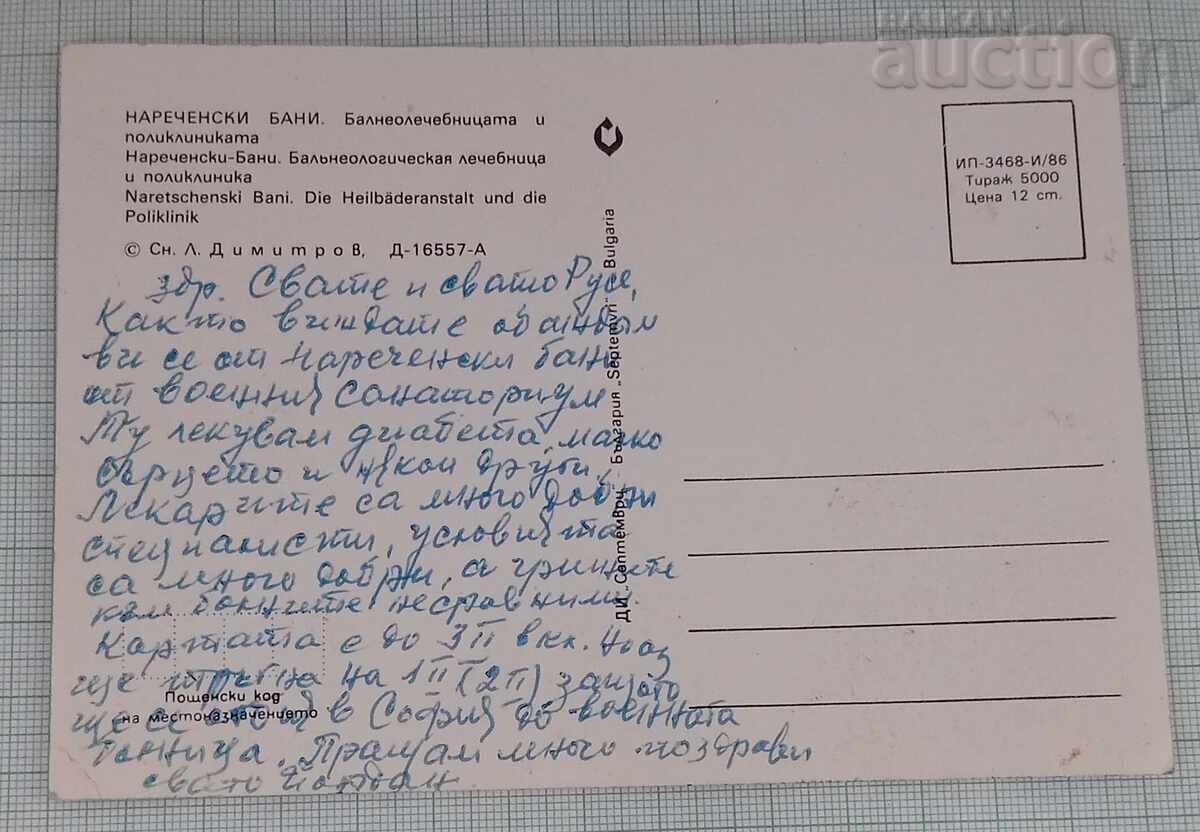 БАЛКАН
auction
НАРЕЧЕНСКИ БАНИ. Балнеолечебницата и
поликлиниката
Нареченски-Бани. Бальнеологическая лечебница
и поликлиника
Naretschenski Bani. Die Heilbäderanstalt und die
Poliklinik
© Сн. Л. Димитров, Д-16557-А
ДИ „Септември" - България „Septemvri" Bulgaria
ИП-3468-И/86
Тираж 5000
Цена 12 ст.
здр. Свате и свато Русе,
Както виждате обаждам
ви се от Нареченски бани
от военния санаториум
Ту лекувам диабета, малко
сърцето и някои други.
Лекарите са много добри
специалисти, условията
са много добри, а грижите
към болните несравними.
Картата е до 3 II вкл. Но аз
ще тръгна на 1 II (2 II) защото
ще се отбия в София до военната
болница. Пращам много поздрави
свато Йордан
Пощенски код
на местоназначението